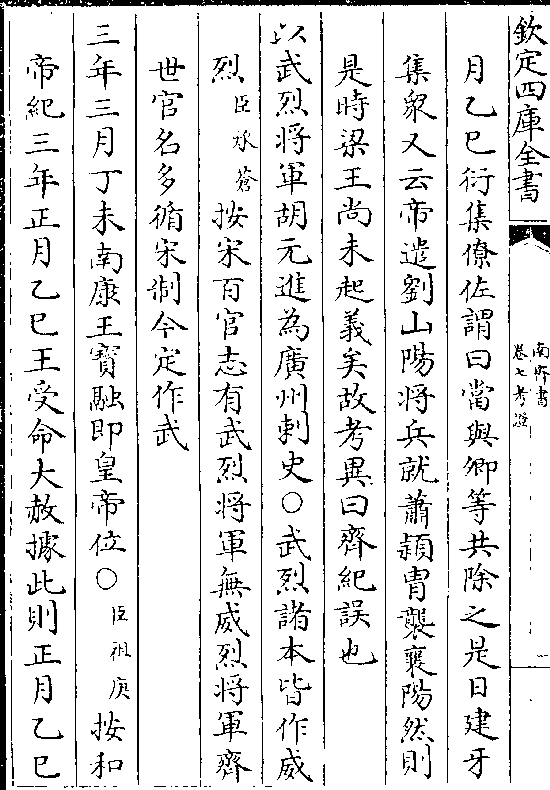 欽定四庫全書
南齊書
卷七考證
月乙巳衍集僚佐謂曰當與卿等共除之是日建牙
集衆又云帝遣劉山陽將兵就蕭穎冑襲襄陽然則
是時梁王尚未起義矣故考異曰齊紀誤也
以武烈將軍胡元進為廣州刺史○武烈諸本皆作威
烈臣承蒼按宋百官志有武烈將軍無威烈將軍齊
世官名多循宋制今定作武
三年三月丁未南康王寶融即皇帝位○臣祖庚按和
帝紀三年正月乙巳王受命大赦據此則正月乙巳